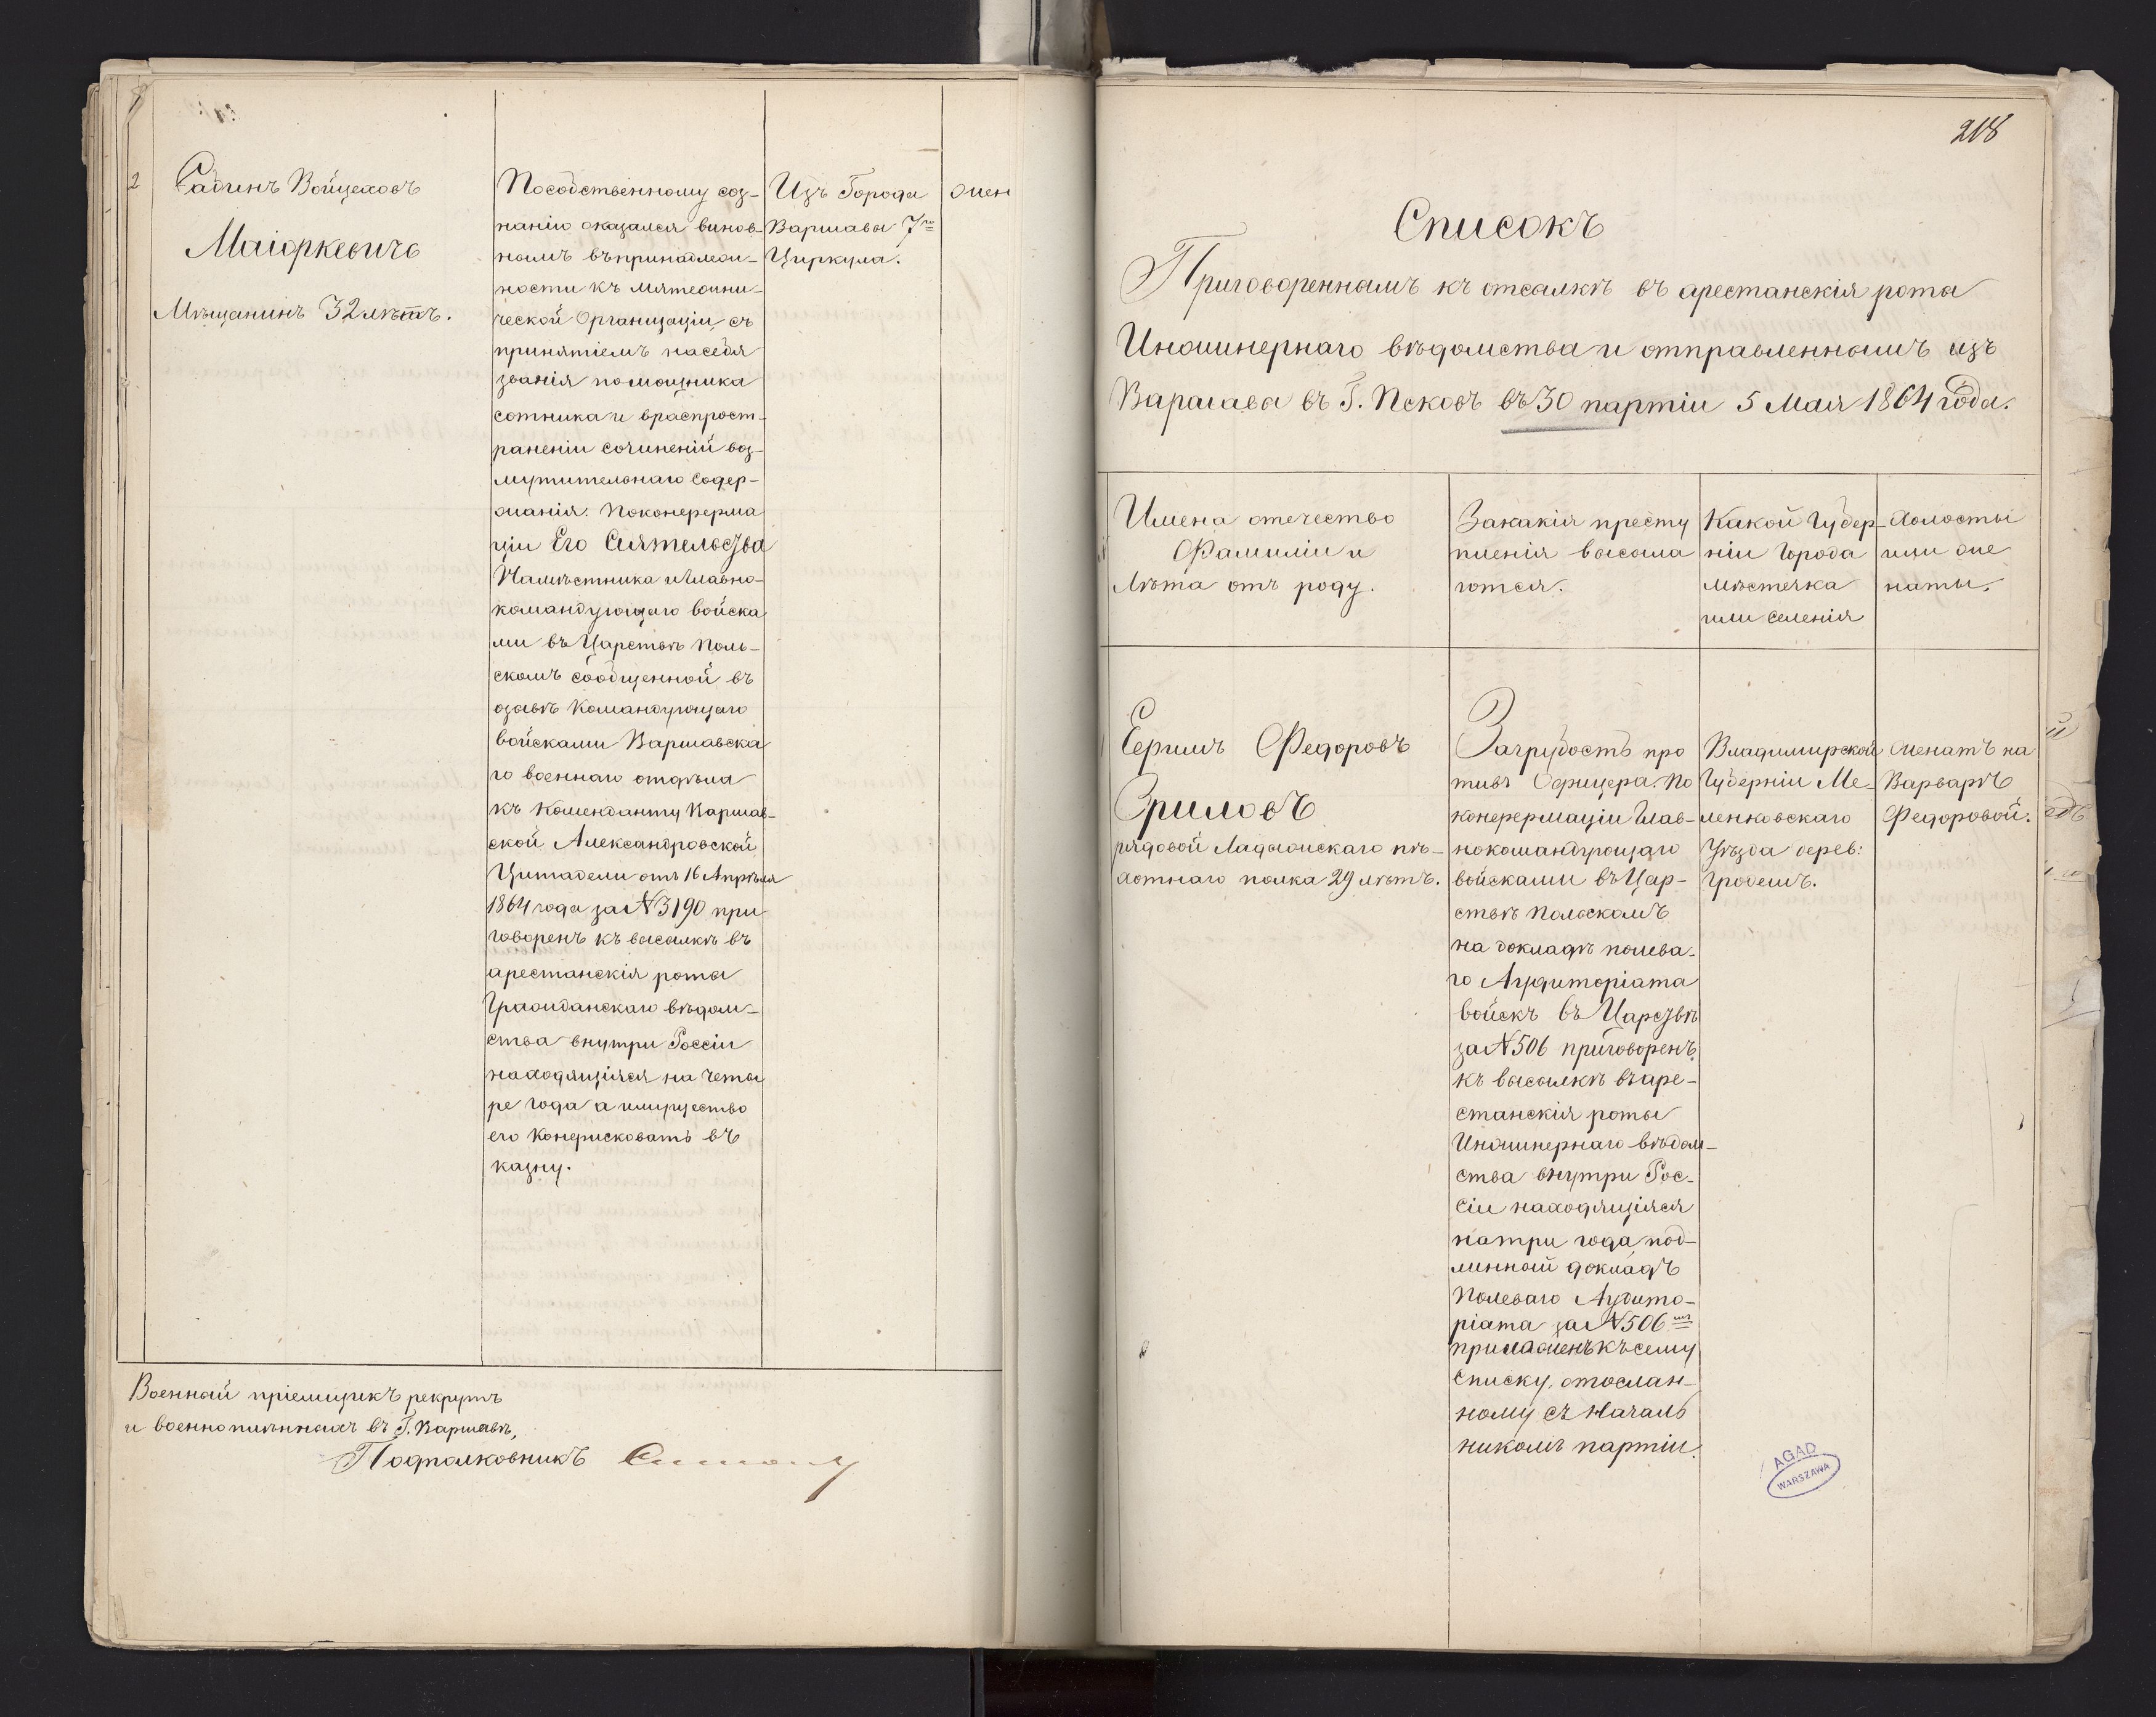 2
Сабинъ Войцеховъ
Маіоркевичъ
Мѣщанинъ 32 лѣтъ.
Пособственному соз-
нанію оказался винов-
нымъ въ принадлеж-
ности къ мятежни-
ческой Организаціи съ
принятіемъ насебя
званія помощника
сотника и враспрост-
раненіи сочиненій воз-
мутительнаго содер-
жанія. Поконферма
ціи Его Сіятельства
Намѣстника и Главно-
командующаго войска
ми въ Царствѣ Поль-
скомъ сообщенной въ
отзывѣ Командующаго
войсками Варшавска
го военнаго отдѣла
къ Коменданту Варшав-
ской Александровской
Цитадели отъ 16 Апрѣля
1864 года за N 3190 при
говоренъ къ высылкѣ въ
арестанскія роты
Гражданскаго вѣдом-
ства внутри Россіи
находящіяся на четы
ре года а имущество
его Конфисковать въ
казну.
Изъ Города
Варшавы 7го
Циркула.
жен
Военный пріемщикъ рекрутъ
и военноплѣнныхъ въ Г. Варшавѣ,
Подполковникъ
218
Списокъ
Приговореннымъ къ отсылкѣ въ арестанскія роты
Инжинернаго вѣдомства и отправленнымъ изъ
Варшавы въ Г. Псковъ въ 30 партіи 5 Мая 1864 года.
Имена отечество
Фамиліи и
Лѣта отъ роду.
Закакія престу
пленія высыла
ются.
Какой Губер-
ніи Города
мѣстечка
или селенія
Холосты
или же
наты.
1
Ефимъ Федоровъ
Фриловъ
рядовой Ладожскаго пѣ-
хотнаго полка 29 лѣтъ.
Загрубость про
тивъ Офицера. По
конфермаціи Глав-
нокомандующаго
войсками въ Цар-
ствѣ Польскомъ
на докладѣ полева-
го Аудиторіата
войскъ въ Царствѣ
за N 506 приговоренъ
къ высылкѣ въ аре-
станскія роты
Инжинернаго вѣдом-
ства внутри Рос-
сіи находящіяся
натри года, под-
линный докладъ
Полеваго Аудито-
ріата за N 506мъ
приложенъ къ сему
списку, отослан-
ному съ Началь
никомъ партіи.
Владимирской
Губерніи Ме-
ленковскаго
Уѣзда дерев:
Женатъ на
Варварѣ
Федоровой.
AGAD
WARSZAWA